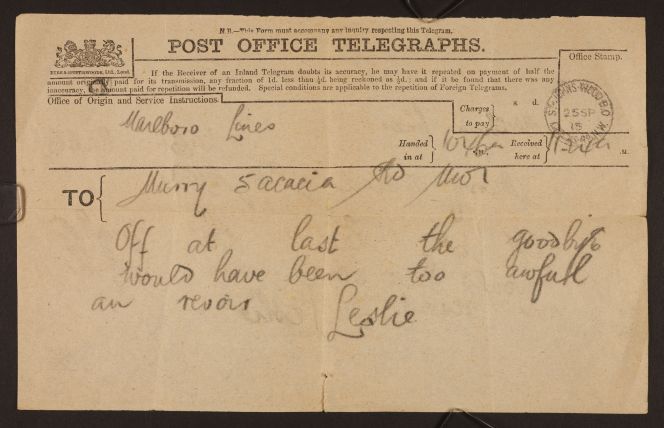 N.B.—This Form must accompany any inquiry respecting this Telegram.
POST OFFICE TELEGRAPHS.
Office Stamp.
If the Receiver of an Inland Telegram doubts its accuracy, he may have it repeated on payment of half the
amount originally paid for its transmission, any fraction of 1d. less than ½d. being reckoned as ½d.; and if it be found that there was any
inaccuracy, the amount paid for repetition will be refunded. Special conditions are applicable to the repetition of Foreign Telegrams.
Office of Origin and Service Instructions.
Marlboro Lines
Charges to pay
s. d.
25 SP
15
Handed in at
Received here at
TO
Murry 5 acacia Rd
Off at last the goodbye
would have been too awfull
au revoir Leslie